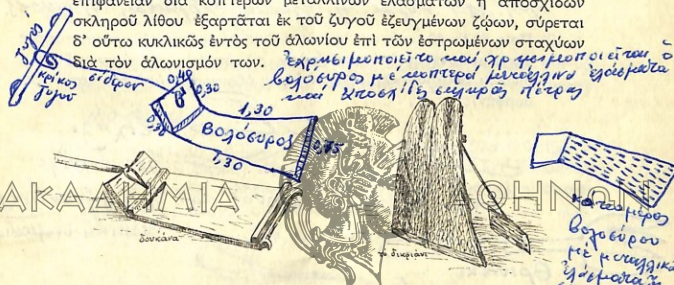 ἐπιφάνειαν διὰ κοπτερῶν μεταλλίνων ἐλασμάτων ἢ ἀποσχίδων
σκληροῦ λίθου ἐξαρτᾶται ἐκ τοῦ ζυγοῦ ἐζευγμένων ζῴων, σύρεται
δ' οὕτω κυκλικῶς ἐντὸς τοῦ ἁλωνίου ἐπὶ τῶν ἐστρωμένων σταχύων
διὰ τὸν ἁλωνισμόν των.
ἐχρησιμοποιεῖτο καί χρησιμοποιεῖται ὁ
βολόσυρος μέ κοπτερά μεταλλικά ἐλάσματα
καί πέτρας
ζυγός
κρίκος
ζυγοῦ
σίδερον
0,40
0,30
0,30
1,30
Βολόσυρος
0,75
1,30
ΑΚΑΔΗΜΙΑ
ΑΘΗΝΩΝ
δουκάνα
το δικριάνι
κάτω μέρος
βολοσύρου
μέ μεταλλικά
ἐλάσματα